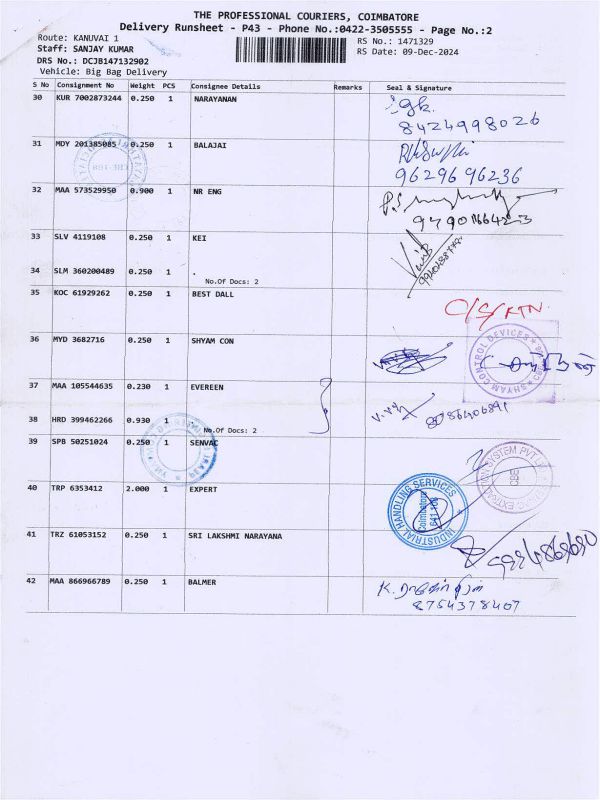 THE PROFESSIONAL COURIERS, COIMBATORE
Delivery Runsheet - P43 - Phone No.:0422-3505555 - Page No.:2
Route: KANUVAI 1
RS No.: 1471329
Staff: SANJAY KUMAR
RS Date: 09-Dec-2024
DRS No.: DCJB147132902
Vehicle: Big Bag Delivery
S No Consignment No Weight PCS Consignee Details Remarks Seal & Signature
30 KUR 7002873244 0.250 1 NARAYANAN
8424998026
31 MDY 201385085 0.250 1 BALAJAI
9629696236
32 MAA 573529950 0.900 1 NR ENG
33 SLV 4119108 0.250 1 KEI
34 SLM 360200489 0.250 1 .
No.Of Docs: 2
35 KOC 61929262 0.250 1 BEST DALL
36 MYD 3682716 0.250 1 SHYAM CON
SHYAM CONTROL DEVICES
37 MAA 105544635 0.230 1 EVEREEN
38 HRD 399462266 0.930 1
No.Of Docs: 2
39 SPB 50251024 0.250 1 SENVAC
40 TRP 6353412 2.000 1 EXPERT
INDUSTRIAL HANDLING SERVICES
Coimbatore
CBE
41 TRZ 61053152 0.250 1 SRI LAKSHMI NARAYANA
42 MAA 866966789 0.250 1 BALMER
8754378407